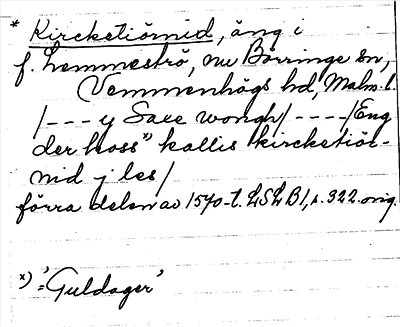 * Kircketiörnid, äng i
f. Lemmeströ, nu Börringe sn,
Vemmenhögs hd, Malm. l.
/--- y Saxe wongh/----/Eng
der hoss x) kallis kircketiör-
nid j les/
förra delen av 1570-t. LSLB1, s. 322. orig.
x) = 'Guldager'